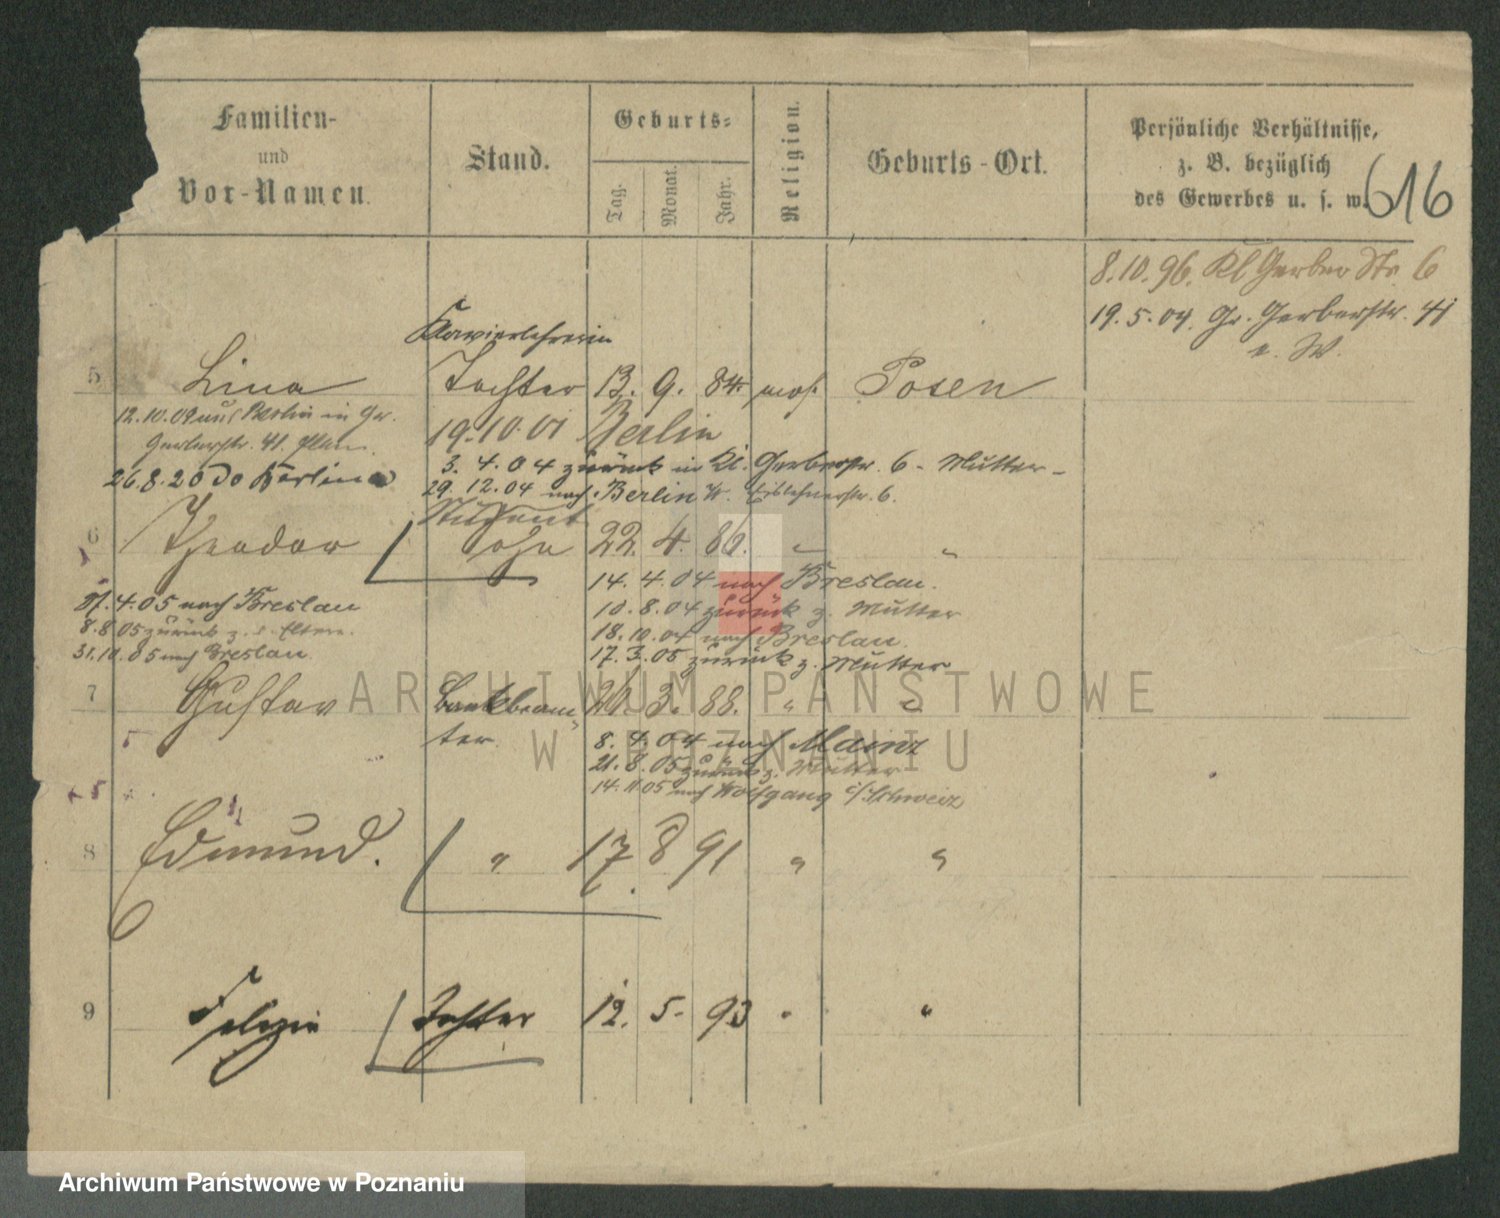 Familien-
und
Vor-Namen.
Stand.
Geburts-
Tag.
Monat.
Jahr.
Religion.
Geburts-Ort.
Persönliche Verhältnisse,
z. B. bezüglich
des Gewerbes u. s. w.
616
8.10.96. Kl Gerber Str. 6
19.5.04. Gr. Gerberstr. 41
e. W.
Klavierlehrerin
5 Lina Tochter 13. 9. 84. mos. Posen
12.10.09 aus Berlin in Gr.
Gerberstr. 41.
26.8.20 do Berlin
19.10.01 Berlin
3. 4. 04 zurück in Kl. Gerberstr. 6 - Mutter -
29. 12. 04 nach Berlin W. Eislebenerstr. 6.
Student
6 Theodor Sohn 22. 4. 86. " "
14. 4. 04 nach Breslau.
10. 8. 04 zurück z. Mutter
18. 10. 04 nach Breslau.
17. 3. 05 zurück z. Mutter
27. 4. 05 nach Breslau
8. 8 05 zurück z. d. Eltern.
31. 10. 05 nach Breslau.
7 Gustav Bankbeam-
ter 26. 3. 88. " "
8. 4. 04 nach Mainz
21. 8. 05 zurück z. Mutter
14. 11. 05 nach Wolfgang i/Schweiz
8 Edmund. " 17. 8 91 " "
9 Felizie Tochter 12. 5. 93 " "
ARCHIWUM PAŃSTWOWE
W POZNANIU
Archiwum Państwowe w Poznaniu